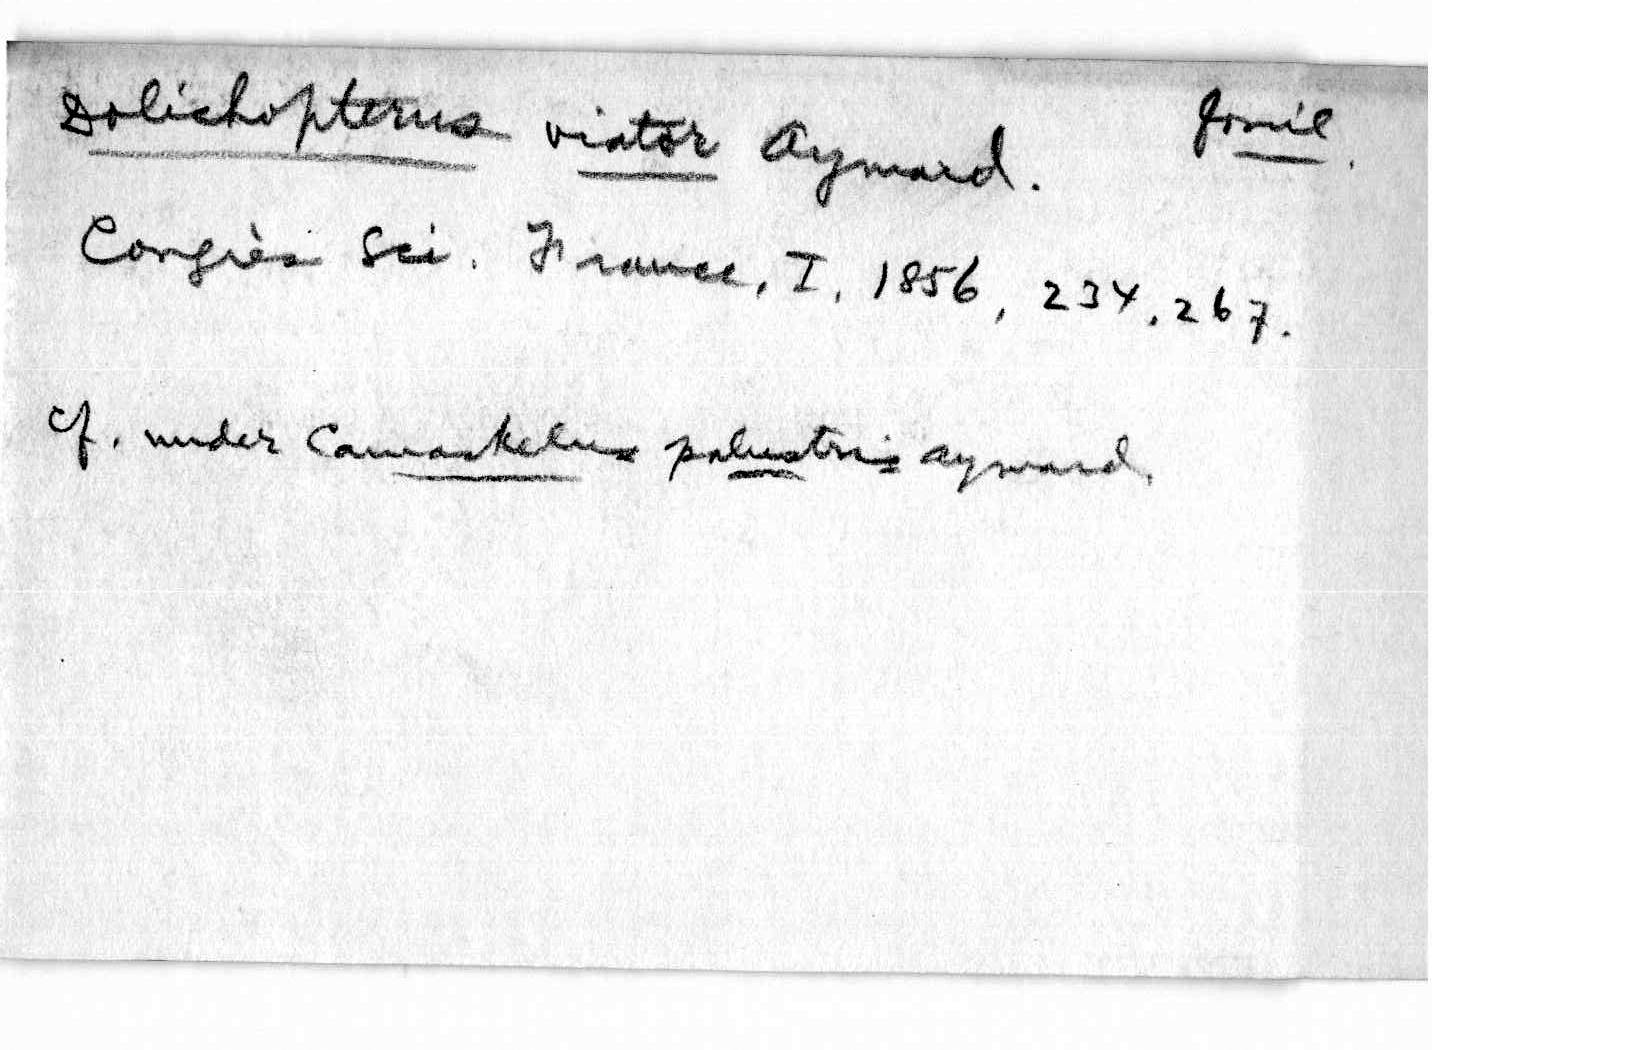 Dolichopterus viator Aymard. Fossil.
Congrès Sci. France, I, 1856, 234, 267.
cf. under Camaskelus palustris Aymard.